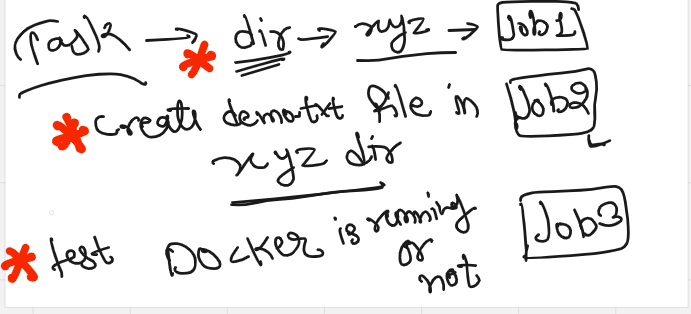 Task → * dir → xyz → Job1
* create demo.txt file in Job2
xyz dir
* test Docker is running or not Job3